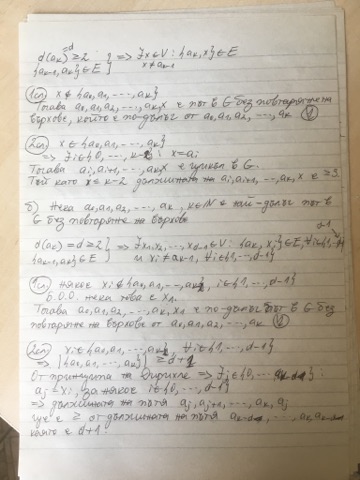 d(aₖ) = d ≥ 2 } => ∃x∈V : {aₖ,x}∈E
{aₖ₋₁,aₖ}∈E } x≠aₖ₋₁
1сл) x∉{a₀,a₁,...,aₖ}
Тогава a₀,a₁,a₂,...,aₖ,x е път в G без повтаряне на
върхове, който е по-дълъг от a₀,a₁,a₂,...,aₖ
2сл) x∈{a₀,a₁,...,aₖ}
=> ∃i∈{0,...,k-2} : x=aᵢ
Тогава aᵢ,aᵢ₊₁,...,aₖ,x е цикъл в G.
Тъй като i≤k-2 дължината на aᵢ,aᵢ₊₁,...,aₖ,x е ≥3.
б) Нека a₀,a₁,a₂,...,aₖ, k∈N е най-дълъг път в
G без повтаряне на върхове
d(aₖ)=d≥2 } => ∃x₁,x₂,...,x_{d-1}∈V : {aₖ,xᵢ}∈E, ∀i∈{1,...,d-1}
{aₖ₋₁,aₖ}∈E } и xᵢ≠aₖ₋₁, ∀i∈{1,...,d-1}
1сл) някое xᵢ∉{a₀,a₁,...,aₖ}, i∈{1,...,d-1}
Б.О.О. нека това е x₁.
Тогава a₀,a₁,a₂,...,aₖ,x₁ е по-дълъг път в G без
повтаряне на върхове от a₀,a₁,a₂,...,aₖ
2сл) xᵢ∈{a₀,a₁,...,aₖ}, ∀i∈{1,...,d-1}
=> |{a₀,a₁,...,aₖ}| ≥ d+1
От принципа на Дирихле => ∃j∈{0,...,k-d}:
aⱼ=xᵢ, за някое i∈{1,...,d-1}
=> дължината на пътя aⱼ,aⱼ₊₁,...,aₖ,aⱼ
ще е ≥ от дължината на пътя
която е d+1.